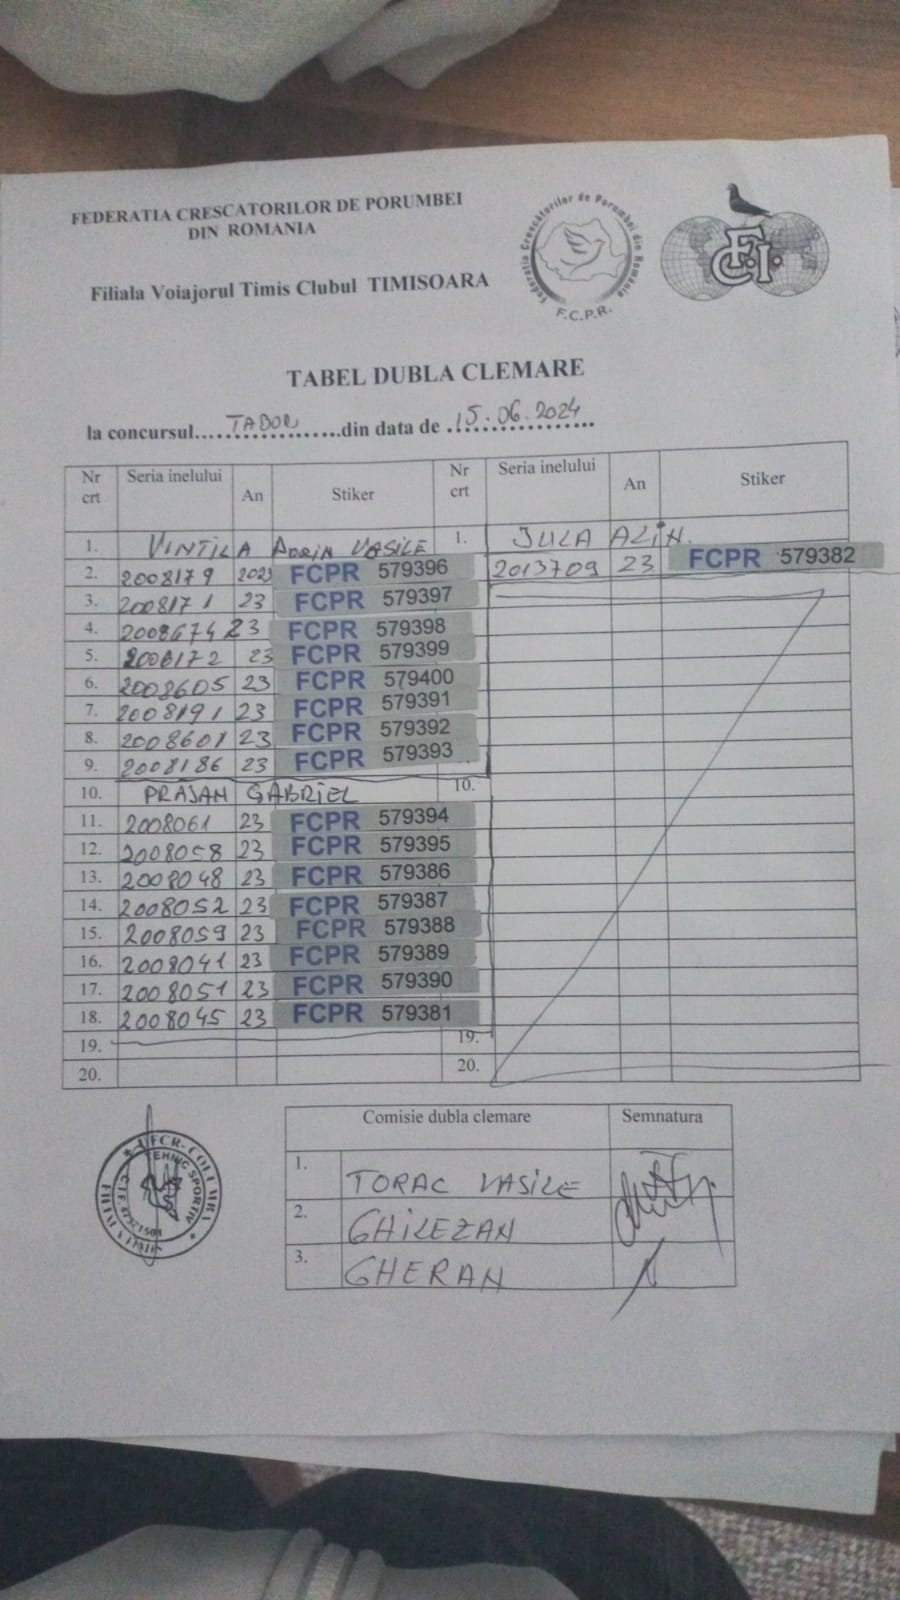 FEDERATIA CRESCATORILOR DE PORUMBEI
DIN ROMANIA
Filiala Voiajorul Timis Clubul TIMISOARA
Federatia Crescătorilor de Porumbei din România
F.C.P.R.
F.C.I.
TABEL DUBLA CLEMARE
la concursul....TABOR....din data de .15.06.2024
Nr crt Seria inelului An Stiker Nr crt Seria inelului An Stiker
1. VINTILA ADRIN VASILE 1. JULA ALIN.
2. 2008179 2023 FCPR 579396 2013709 23 FCPR 579382
3. 2008171 23 FCPR 579397
4. 2008674 23 FCPR 579398
5. 2008172 23 FCPR 579399
6. 2008605 23 FCPR 579400
7. 2008191 23 FCPR 579391
8. 2008601 23 FCPR 579392
9. 2008186 23 FCPR 579393
10. PRAJAN GABRIEL 10.
11. 2008061 23 FCPR 579394
12. 2008058 23 FCPR 579395
13. 2008048 23 FCPR 579386
14. 2008052 23 FCPR 579387
15. 2008059 23 FCPR 579388
16. 2008041 23 FCPR 579389
17. 2008051 23 FCPR 579390
18. 2008045 23 FCPR 579381
19. 19.
20. 20.
Comisie dubla clemare Semnatura
1. TORAC VASILE
2. GHILEZAN
3. GHERAN
TEHNIC SPORTIV